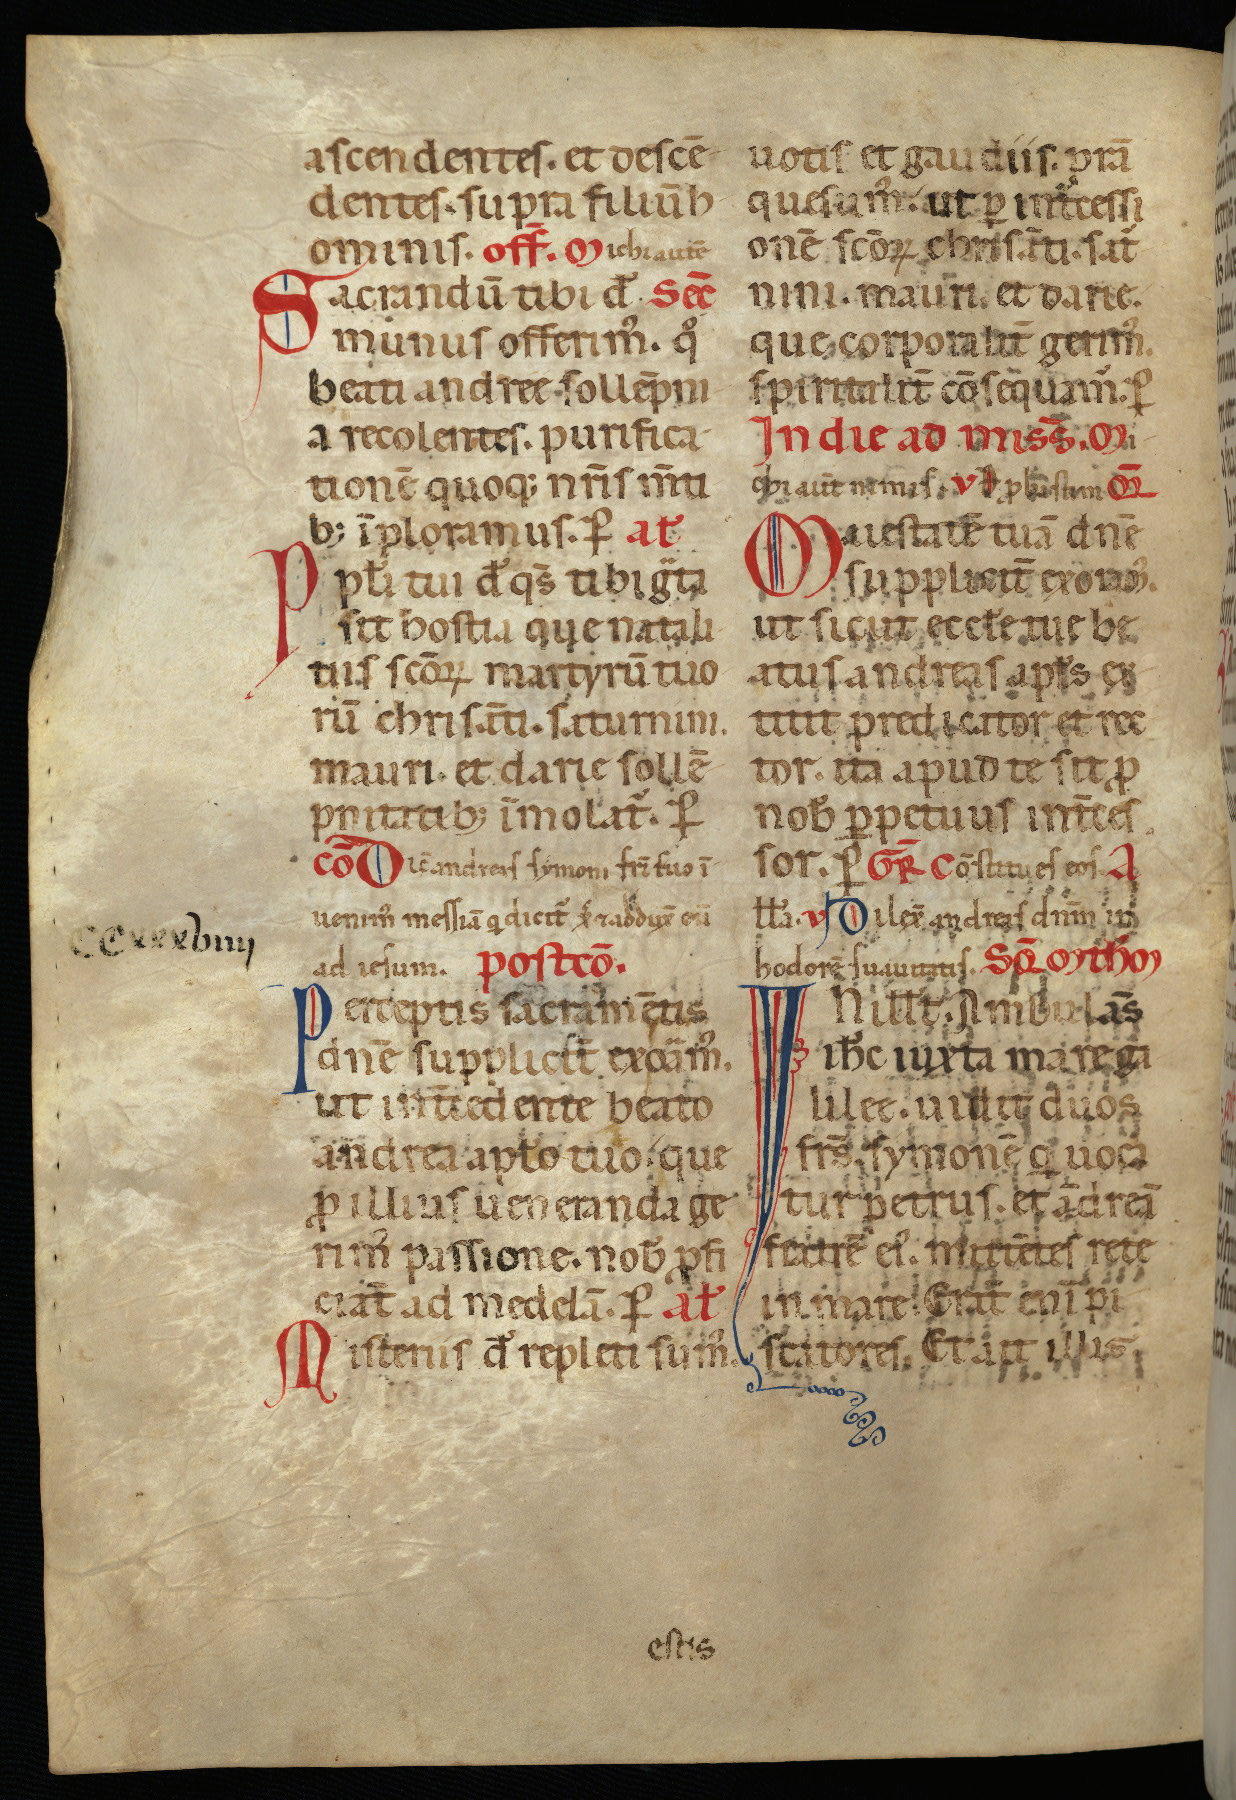 ascendentes. et descē
dentes. supra filiūh
ominis. off̄. Michi autē
Sacrandū tibi d̄. Sec̄
munus offerim᷒. qͦ
beati andree sollēpni
a recolentes. purifica
tionē quoq; nr̄is m̄ti
b; īploramus. ꝑ al̄
Ppl̄i tui d̄ qs̄ tibi gͣta
sit hostia que natali
tiis scōꝝ martyrū tuo
rū chrisāti. saturnini.
mauri. et darie sollē
pnitatib; īmolat᷒. ꝑ
cō Dic̄ andreas symoni fr̄i suo ī
uenim᷒ messiā q dicit᷒ xp̄c ⁊ adduxͭ eū
ad iesum. postcō.
Perceptis sacramētis
dnē supplicit̄ exoram᷒.
ut int̄cedente beato
andrea apl̄o tuo. que
ꝓ illius ueneranda ge
rim᷒ passione. nob̄ ꝓfi
ciāt ad medelā. ꝑ al̄
Misteriis d̄ repleti sum᷒.
CCxxxbiiij
uotis et gaudiis. prā
quesum᷒. ut ꝑ int̄cessi
onē scōꝝ chrisāti. sat᷒
nini. mauri. et darie.
que corporalit̄ gerim᷒.
spiritalit̄ cōsequam᷒. ꝑ
In die ad miss̄. Mi
chi aut̄ nimis. v
Maiestatē tuā dnē
supplicit̄ exoram᷒.
ut sicut eccl̄e tue be
atus andreas apl̄s ex
titit predicator et rec
tor. ita apud te sit ꝓ
nob̄ ꝑpetuus int̄ces
sor. ꝑ GR̄ Cōstitues eos. A
ll̄a. v Dilexͭ andreas dn̄m in
hodorē suauitatis. SQ̄ Mtheo
IN ill̄ t̄. Ambulās
ih̄c iuxta mare ga
lilee. uidit duos
fr̄s. symonē q̄ uoca
tur petrus. et ādreā
fratrē ei᷒. mittētes rete
in mare. Erāt eni᷒ pi
scatores. Et ait illis.
estis